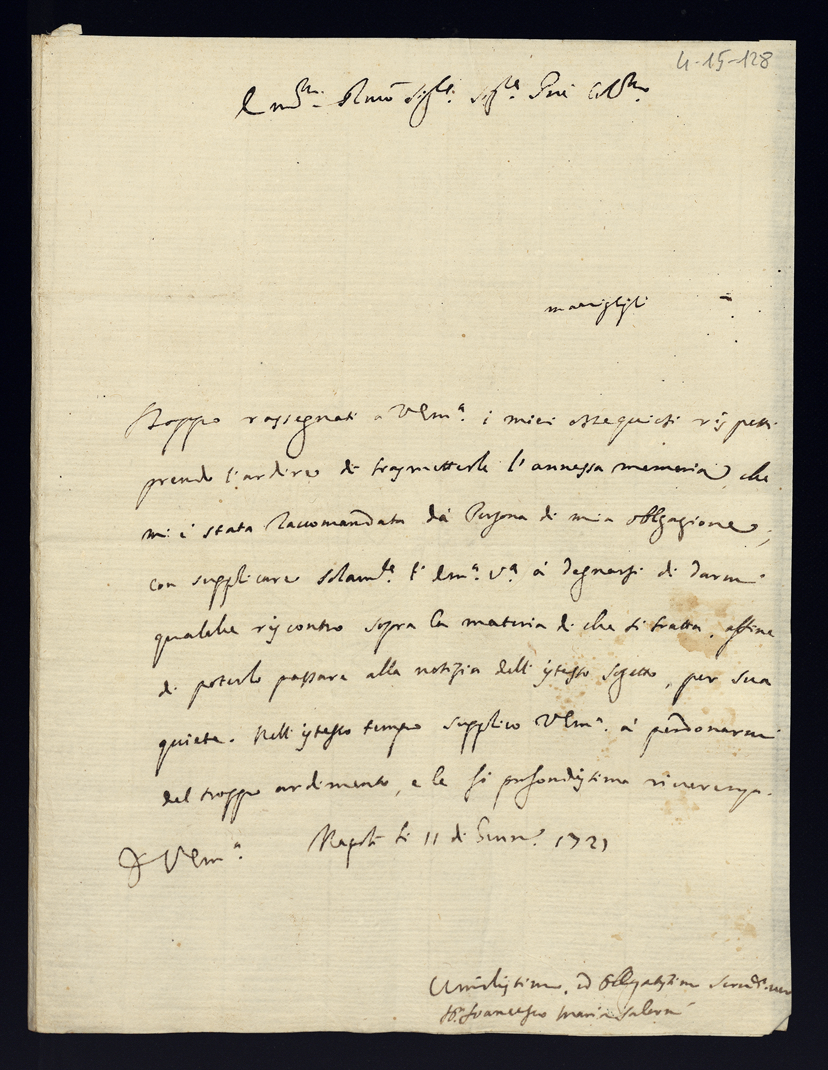 4-15-128
Emin.mo Sig.re Sig.re Pne Col.mo
Doppo rassegnati a V Em.a i miei ossequiosi rispetti
prendo l'ardire di trasmetterle l'annessa memoria, che
mi è stata raccomandata da Persona di mia obligazione,
con supplicare solam.te l'Em.a V.a à degnarsi di darmi
qualche riscontro sopra la materia di che si tratta, affine
di poterlo passare alla notizia dell'istesso sogetto, per sua
quiete. Nell'istesso tempo supplico V Em.a à perdonarmi
del troppo ardimento, e le fò profondissima riverenza.
D V Em.a Napoli li 11 di 1721
Umilissimo, ed Obligatissimo
Francesco Maria Salerni